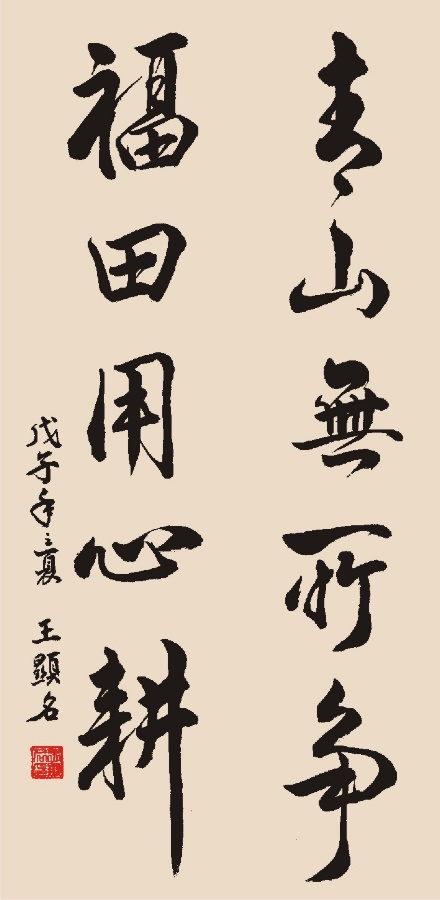 青山無所争
福田用心耕
戊子年之夏 王顯名